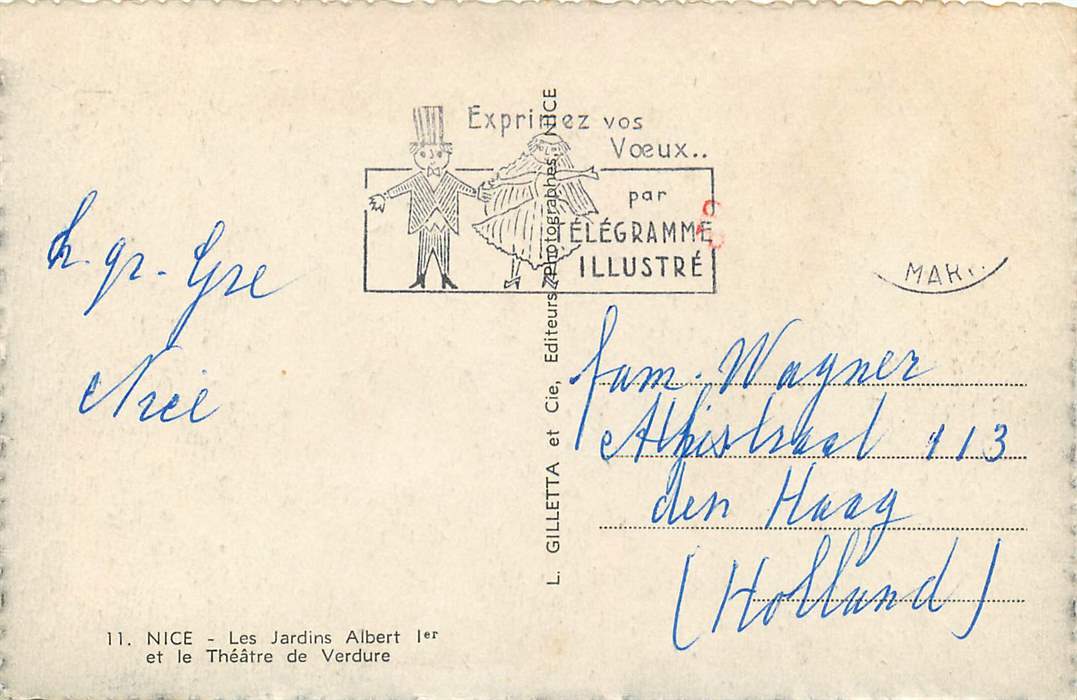 Exprimez vos
Vœux..
par
TÉLÉGRAMME
ILLUSTRÉ
MAR
h. gr.
Nice
fam. Wagner
Alpistraat 113
den Haag
(Holland)
L. GILLETTA et Cie, Editeurs Photographes, NICE
11. NICE - Les Jardins Albert Ier
et le Théâtre de Verdure